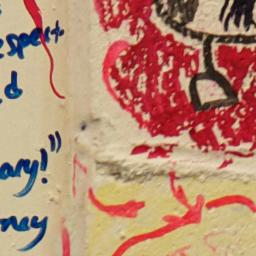 espect
d
ary!"
ney